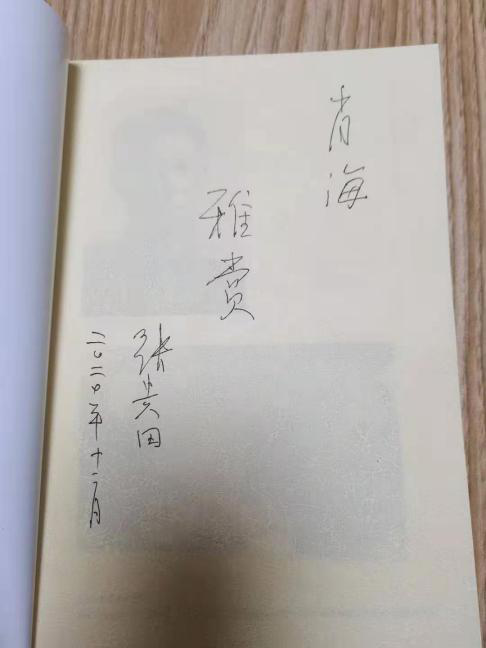 肖海
雅赏
张兴田
二〇二〇年十一月